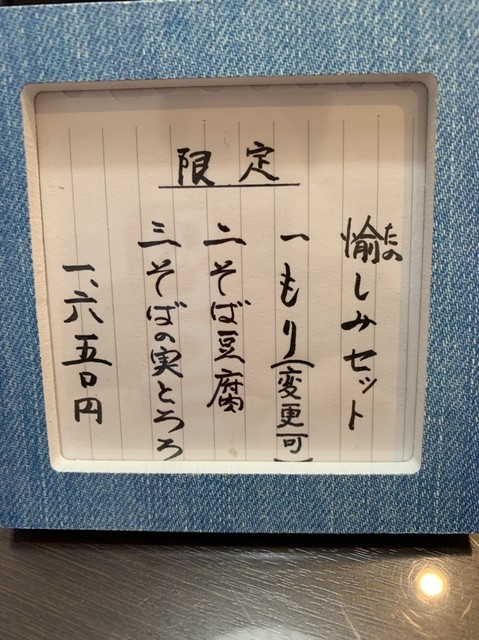 限定
愉しみセット
たの
一もり(変更可)
二そば豆腐
三そばの実とろろ
一、六五〇円